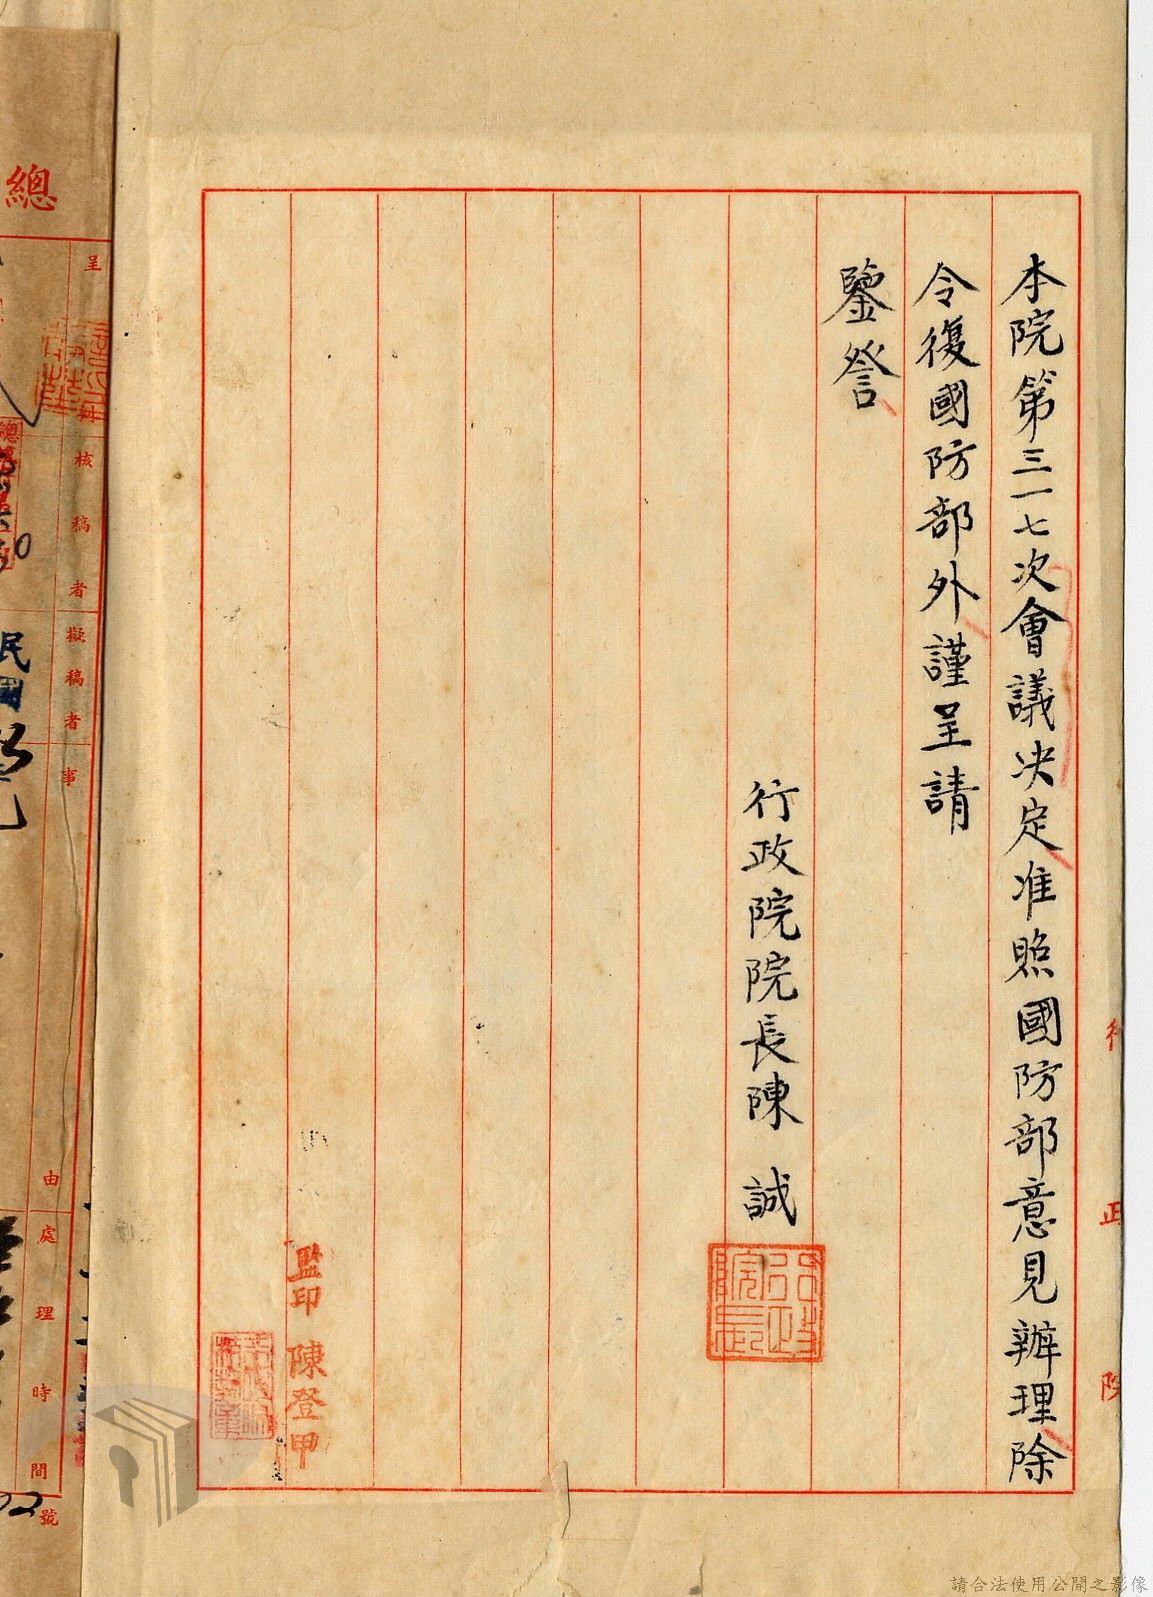 本院第三一七次會議決定准照國防部意見辦理除
令復國防部外謹呈請
鑒詧
行政院院長陳 誠
行政院長
監印 陳登甲
行 政 院
總
呈
核稿者
擬稿者
事
由
處理時間
號
民國
請合法使用公開之影像